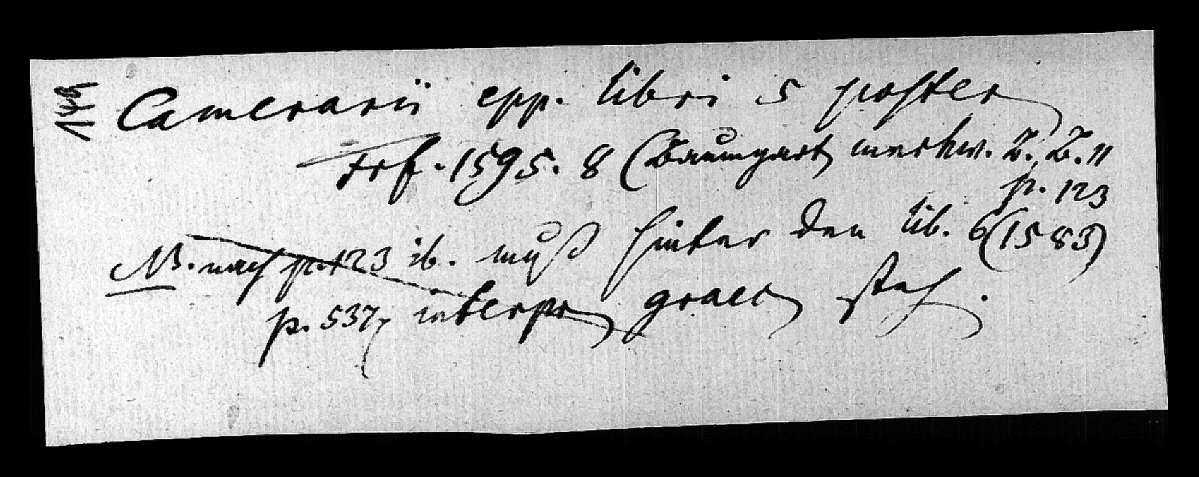 149
Camerarii epp. libri 5 poster
Frf. 1595. 8 (Baumgart merkw. B. B. 11
p. 123
NB. nach p. 123 ib. muß hinter den lib. 6 (1583)
p. 537, interpr graec steh.